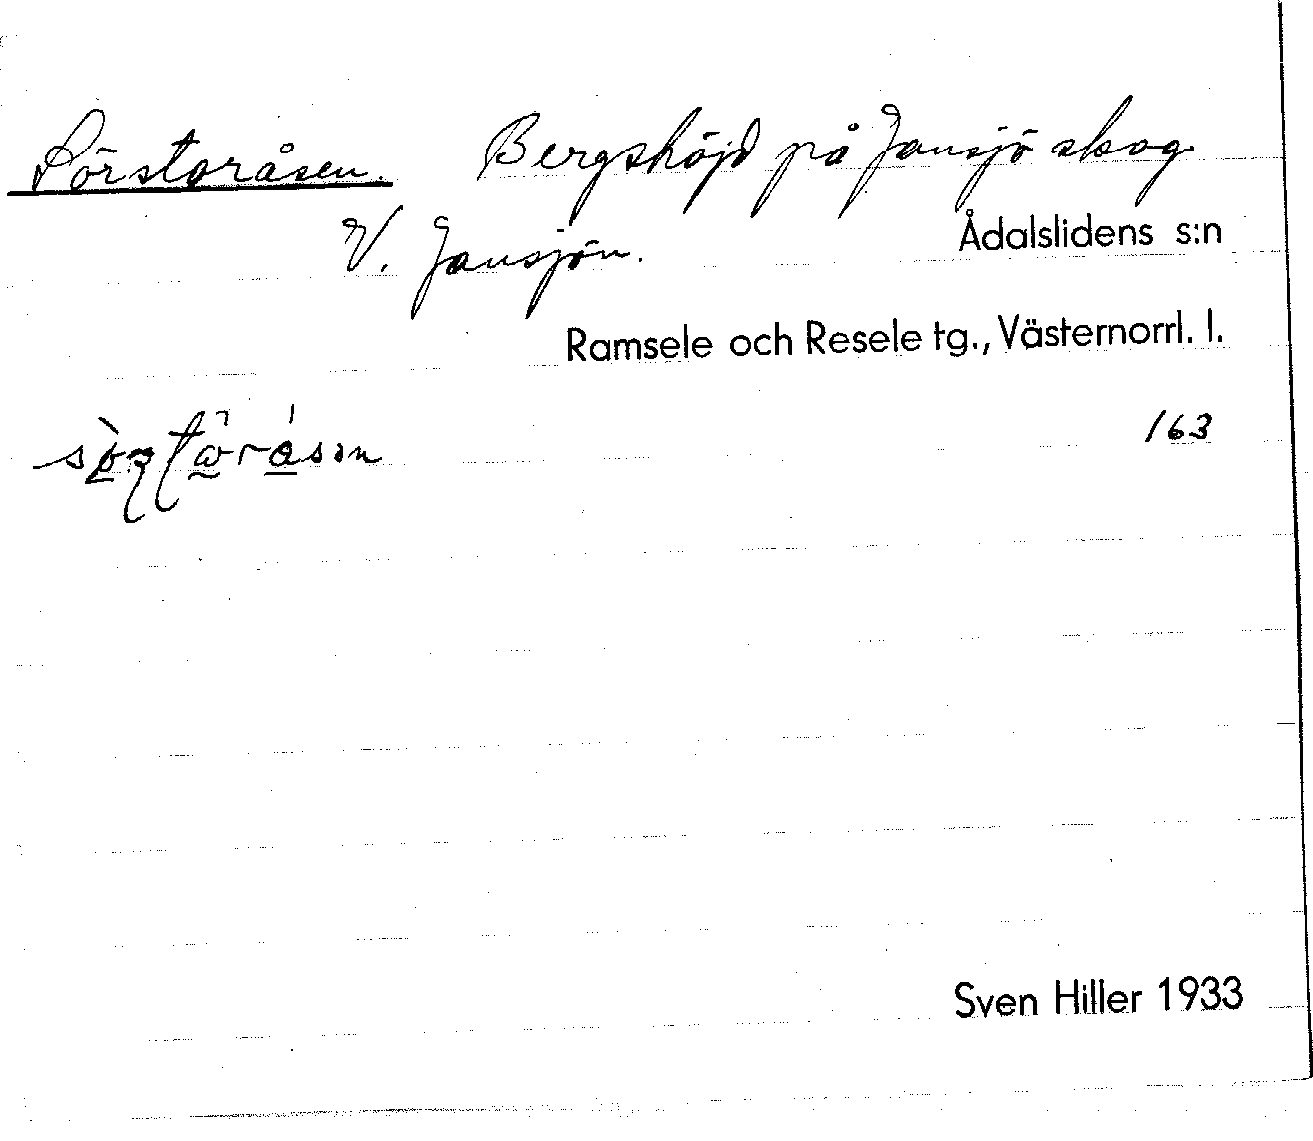 Sörstoråsen. Bergshöjd på Jansjö skog
V. Jansjön. Ådalslidens s:n
Ramsele och Resele tg., Västernorrl. l.
163
Sven Hiller 1933